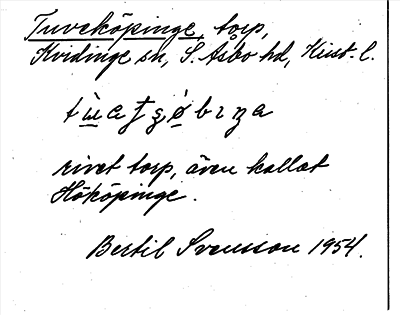 Tuveköpinge, torp,
Kvidinge sn, S. Åsbo hd, Krist. l.
rivet torp, även kallat
Hököpinge.
Bertil Svensson 1954.